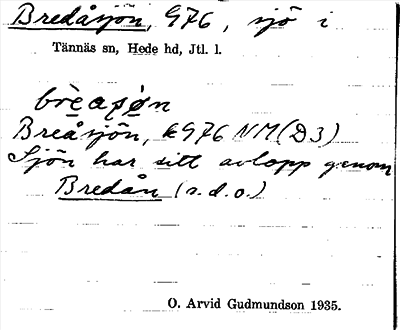 Bredåsjön, 976, sjö i
Tännäs sn, Hede hd, Jtl. l.
Breåsjön, k976 NM(D3)
Sjön har sitt avlopp genom
Bredån (s.d.o.)
O. Arvid Gudmundson 1935.